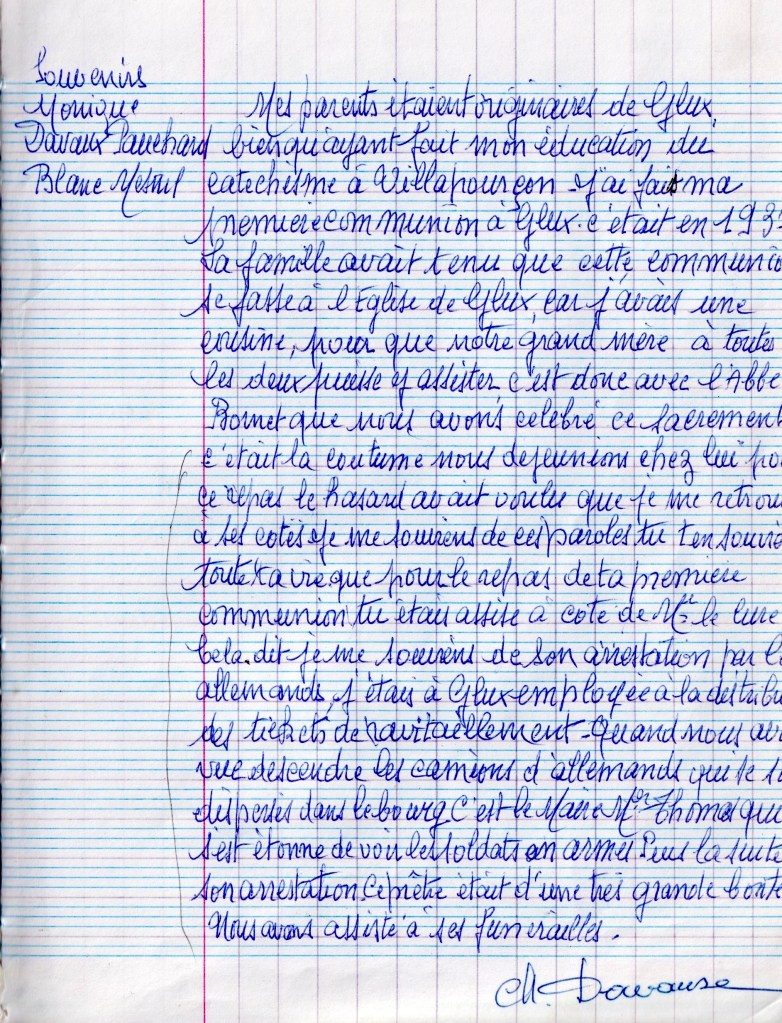 Souvenirs
Monique
Davaux Pauchard
Blanc Mesnil
Mes parents étaient originaires de Glux,
bien qu'ayant fait mon éducation du
catéchisme à Villapourçon - J'ai fait ma
première communion à Glux. c'était en 193
La famille avait tenu que cette communio
se fasse à l'Eglise de Glux, car j'avais une
cousine, pour que notre grand mère à toutes
les deux puisse y assister c'est donc avec l'Abbé
Bornet que nous avons célébré ce sacrement
c'était la coutume nous dejeunions chez lui po
ce repas le hasard avait voulu que je me retrou
à ses cotés. Je me souviens de ces paroles tu t'en souvi
toute ta vie que pour le repas de ta première
communion tu étais assise à coté de Mr le Curé
Cela dit je me souviens de son arrestation par l
allemands, j'étais à Glux employée à la distribu
des tickets de ravitaillement - Quand nous av
vue descendre les camions d'allemands qui se s
dispersés dans le bourg C'est le Maire Mr Thomas qui
s'est étonné de voir les soldats en armes Puis la suite
son arrestation. Ce prêtre était d'une très grande bonté
Nous avons assisté à ses funérailles.